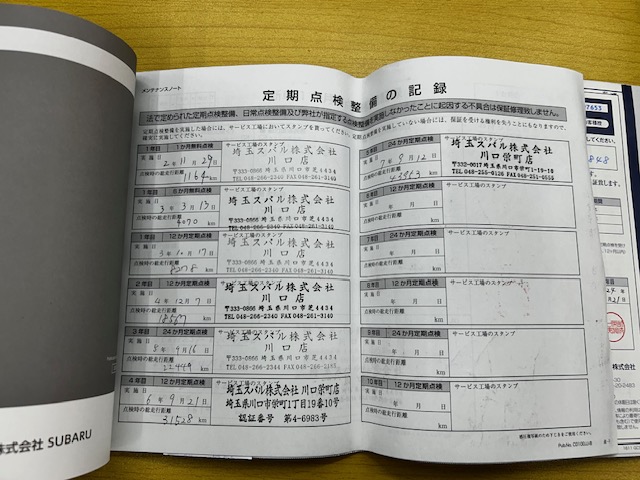 メンテナンスノート
定期点検整備の記録
法で定められた定期点検整備、日常点検整備及び弊社が指定する点検整備を実施しなかったことに起因する不具合は保証修理致しません。
1年目 1か月無料点検
実施日
2年11月29日
点検時の総走行距離
1164 km
サービス工場のスタンプ
埼玉スバル株式会社
川口店
〒333-0866 埼玉県川口市芝4434
TEL 048-266-2340 FAX 048-261-3140
1年目 6か月無料点検
実施日
3年3月13日
点検時の総走行距離
4070 km
サービス工場のスタンプ
埼玉スバル株式会社
川口店
〒333-0866 埼玉県川口市芝4434
TEL 048-266-2340 FAX 048-261-3140
1年目 12か月定期点検
実施日
3年10月17日
点検時の総走行距離
8278 km
サービス工場のスタンプ
埼玉スバル株式会社
川口店
〒333-0866 埼玉県川口市芝4434
TEL 048-266-2340 FAX 048-261-3140
2年目 12か月定期点検
実施日
4年12月7日
点検時の総走行距離
km
サービス工場のスタンプ
埼玉スバル株式会社
川口店
〒333-0866 埼玉県川口市芝4434
TEL 048-266-2340 FAX 048-261-3140
3年目 24か月定期点検
実施日
年9月16日
点検時の総走行距離
22449 km
サービス工場のスタンプ
埼玉スバル株式会社
川口店
〒333-0866 埼玉県川口市芝4434
TEL 048-266-2340 FAX 048-261-3140
4年目 12か月定期点検
実施日
6年9月21日
点検時の総走行距離
31528 km
サービス工場のスタンプ
埼玉スバル株式会社 川口栄町店
埼玉県川口市栄町1丁目19番10号
認証番号 第4-6983号
5年目 24か月定期点検
実施日
7年9月12日
点検時の総走行距離
km
サービス工場のスタンプ
埼玉スバル株式会社
川口栄町店
〒332-0017 埼玉県川口市栄町1-19-10
TEL 048-255-0126 FAX 048-251-0555
12か月定期点検
実施日
年 月 日
点検時の総走行距離
km
サービス工場のスタンプ
7年目 24か月定期点検
実施日
年 月 日
点検時の総走行距離
km
サービス工場のスタンプ
8年目 12か月定期点検
実施日
年 月 日
点検時の総走行距離
km
サービス工場のスタンプ
9年目 24か月定期点検
実施日
年 月 日
点検時の総走行距離
km
サービス工場のスタンプ
10年目 12か月定期点検
実施日
年 月 日
点検時の総走行距離
km
サービス工場のスタンプ
株式会社 SUBARU
7653